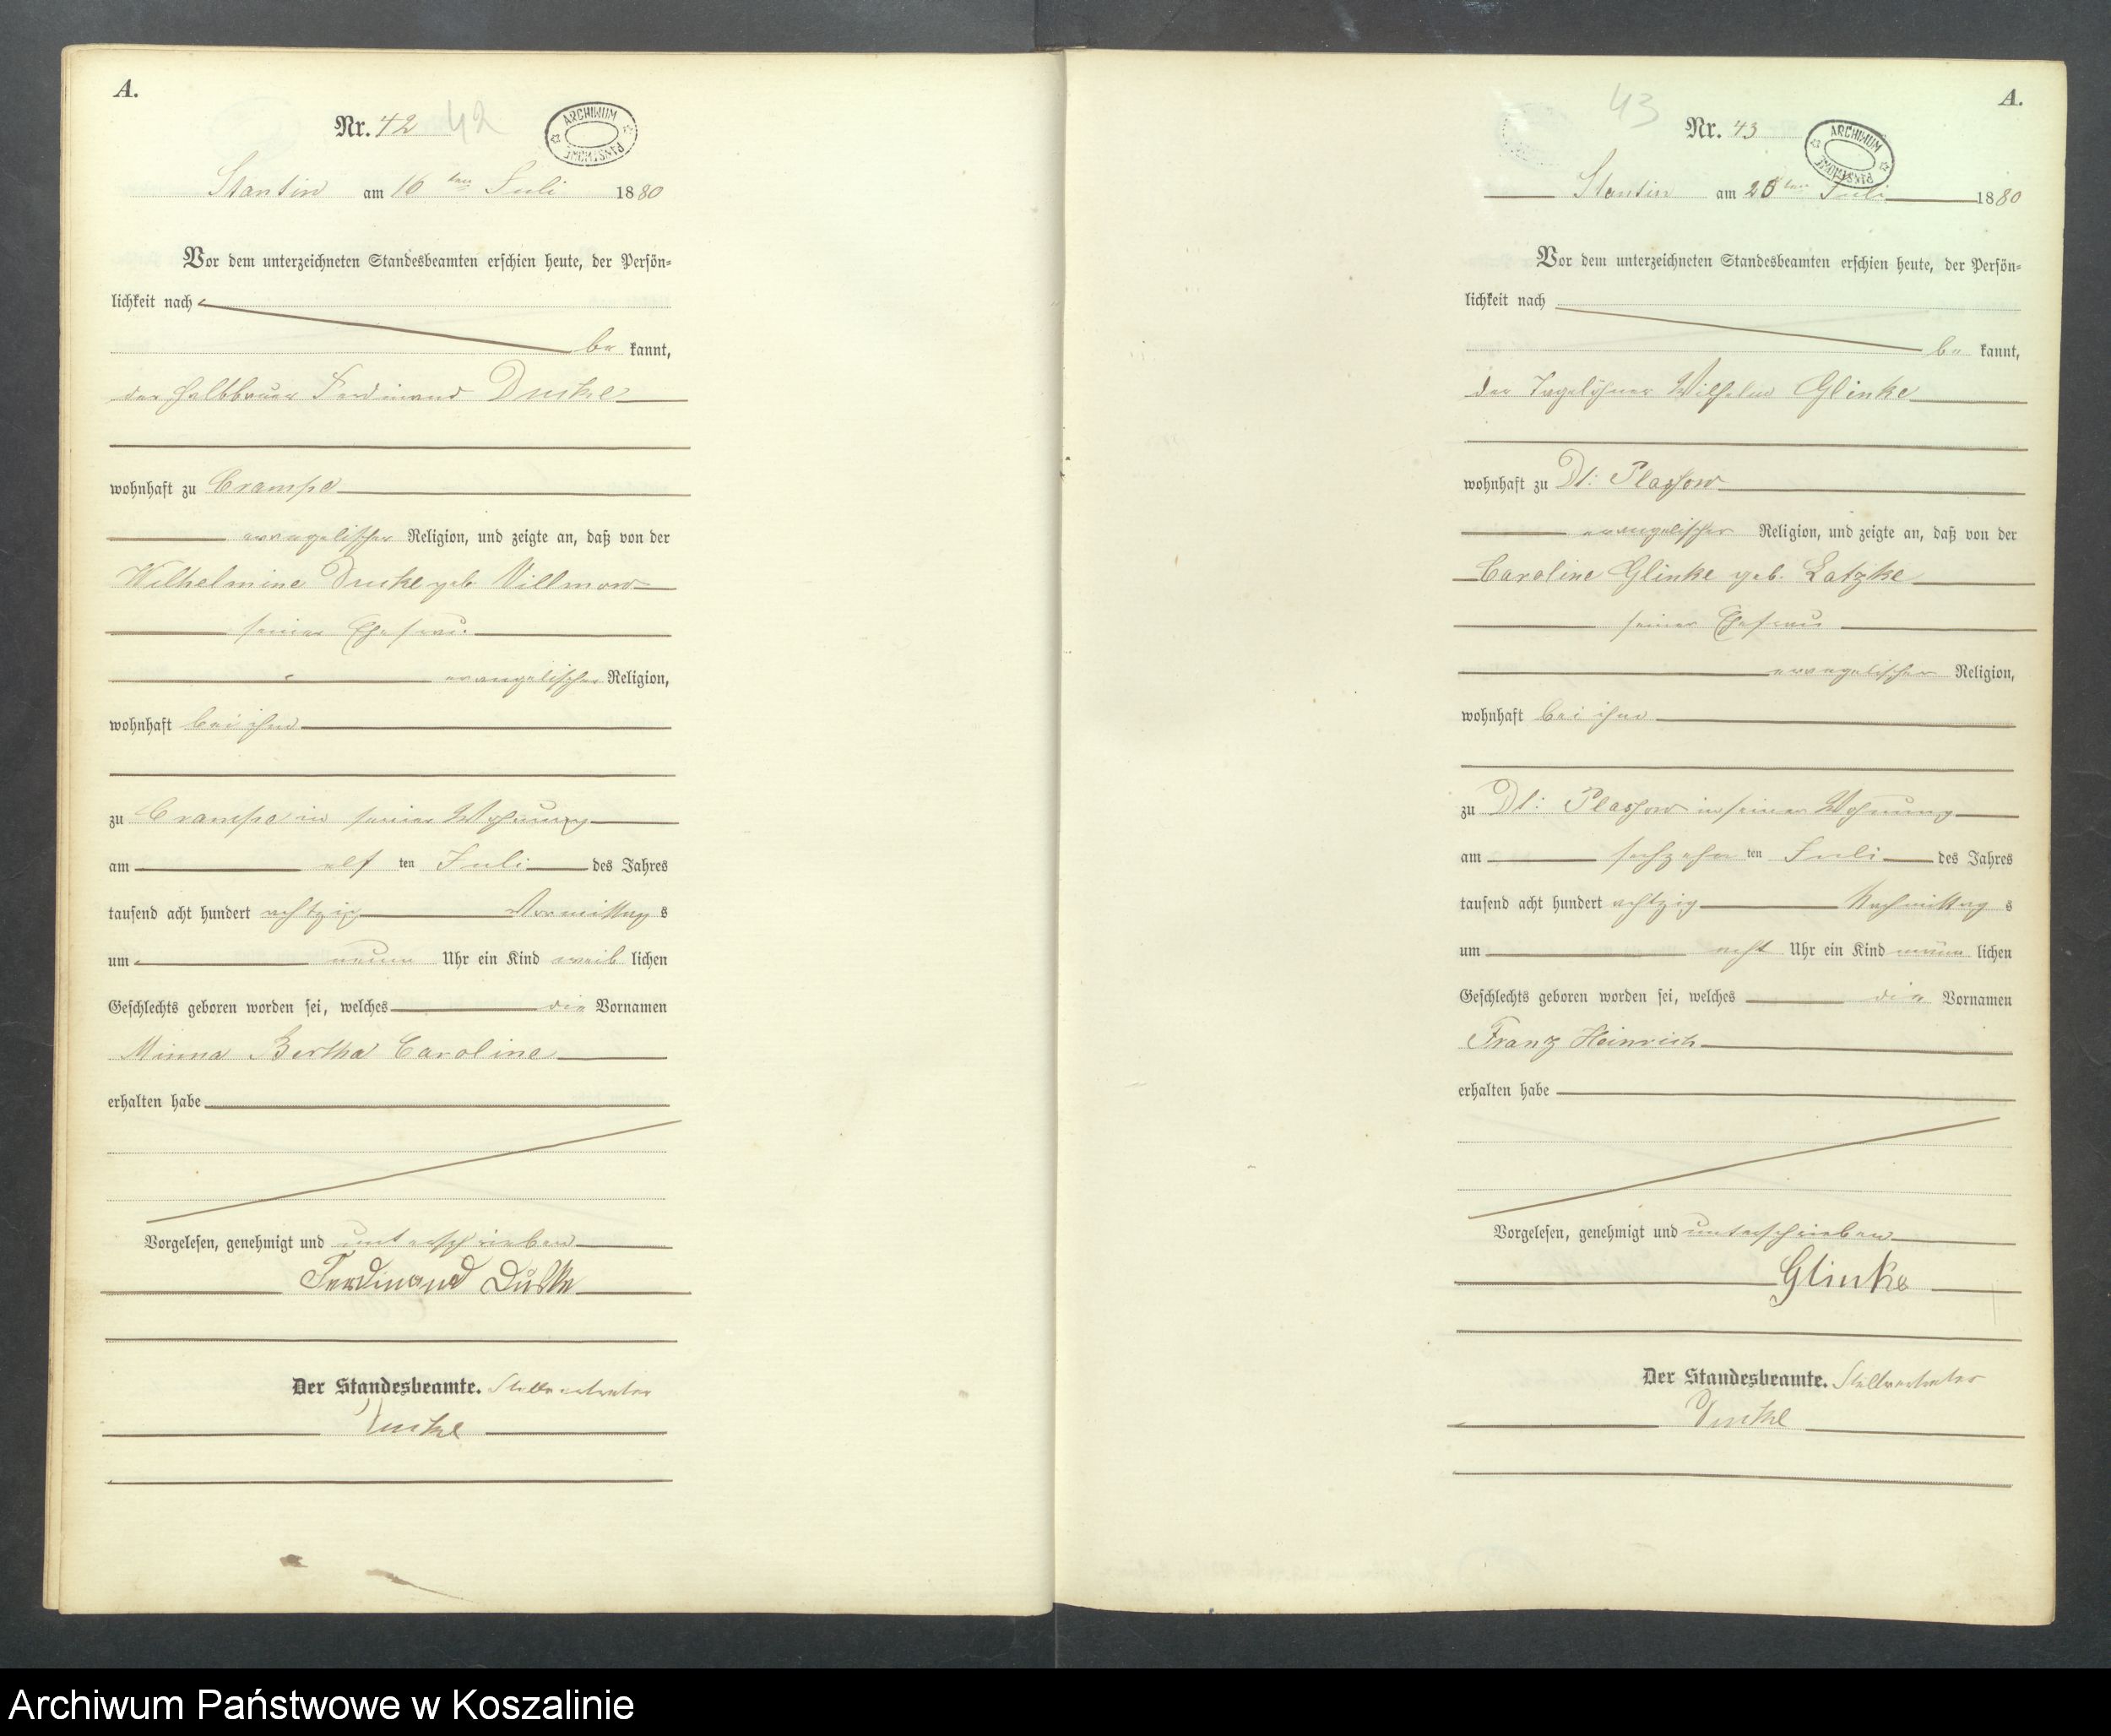 A.
Nr. 42 42
ARCHIWUM PAŃSTWOWE
Stantin am 16 ten Juli 1880
Vor dem unterzeichneten Standesbeamten erschien heute, der Persön-
lichkeit nach
be kannt,
der Halbbauer Ferdinand Duske
wohnhaft zu Crampe
evangelischer Religion, und zeigte an, daß von der
Wilhelmine Duske geb. Villmow
seiner Ehefrau
evangelischer Religion,
wohnhaft bei ihm
zu Crampe in seiner Wohnung
am elf ten Juli des Jahres
tausend acht hundert achtzig Vormittag s
um neun Uhr ein Kind weib lichen
Geschlechts geboren worden sei, welches die Vornamen
Minna Bertha Caroline
erhalten habe
Vorgelesen, genehmigt und unterschrieben
Ferdinand Duske
Der Standesbeamte. Stellvertreter
A.
43
Nr. 43
ARCHIWUM PAŃSTWOWE
Stantin am 20 ten Juli 1880
Vor dem unterzeichneten Standesbeamten erschien heute, der Persön-
lichkeit nach
be kannt,
der Tagelöhner Wilhelm Glinke
wohnhaft zu Dt: Plassow
evangelischer Religion, und zeigte an, daß von der
Caroline Glinke geb. Latzke
seiner Ehefrau
evangelischer Religion,
wohnhaft bei ihm
zu Dt: Plassow in seiner Wohnung
am sechzehn ten Juli des Jahres
tausend acht hundert achtzig Nachmittag s
um acht Uhr ein Kind männ lichen
Geschlechts geboren worden sei, welches die Vornamen
Franz Heinrich
erhalten habe
Vorgelesen, genehmigt und unterschrieben
Glinke
Der Standesbeamte. Stellvertreter
Archiwum Państwowe w Koszalinie